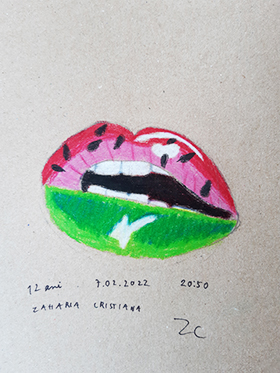 12 ani 7.02.2022 20:50
ZAHARIA CRISTIANA
ZC